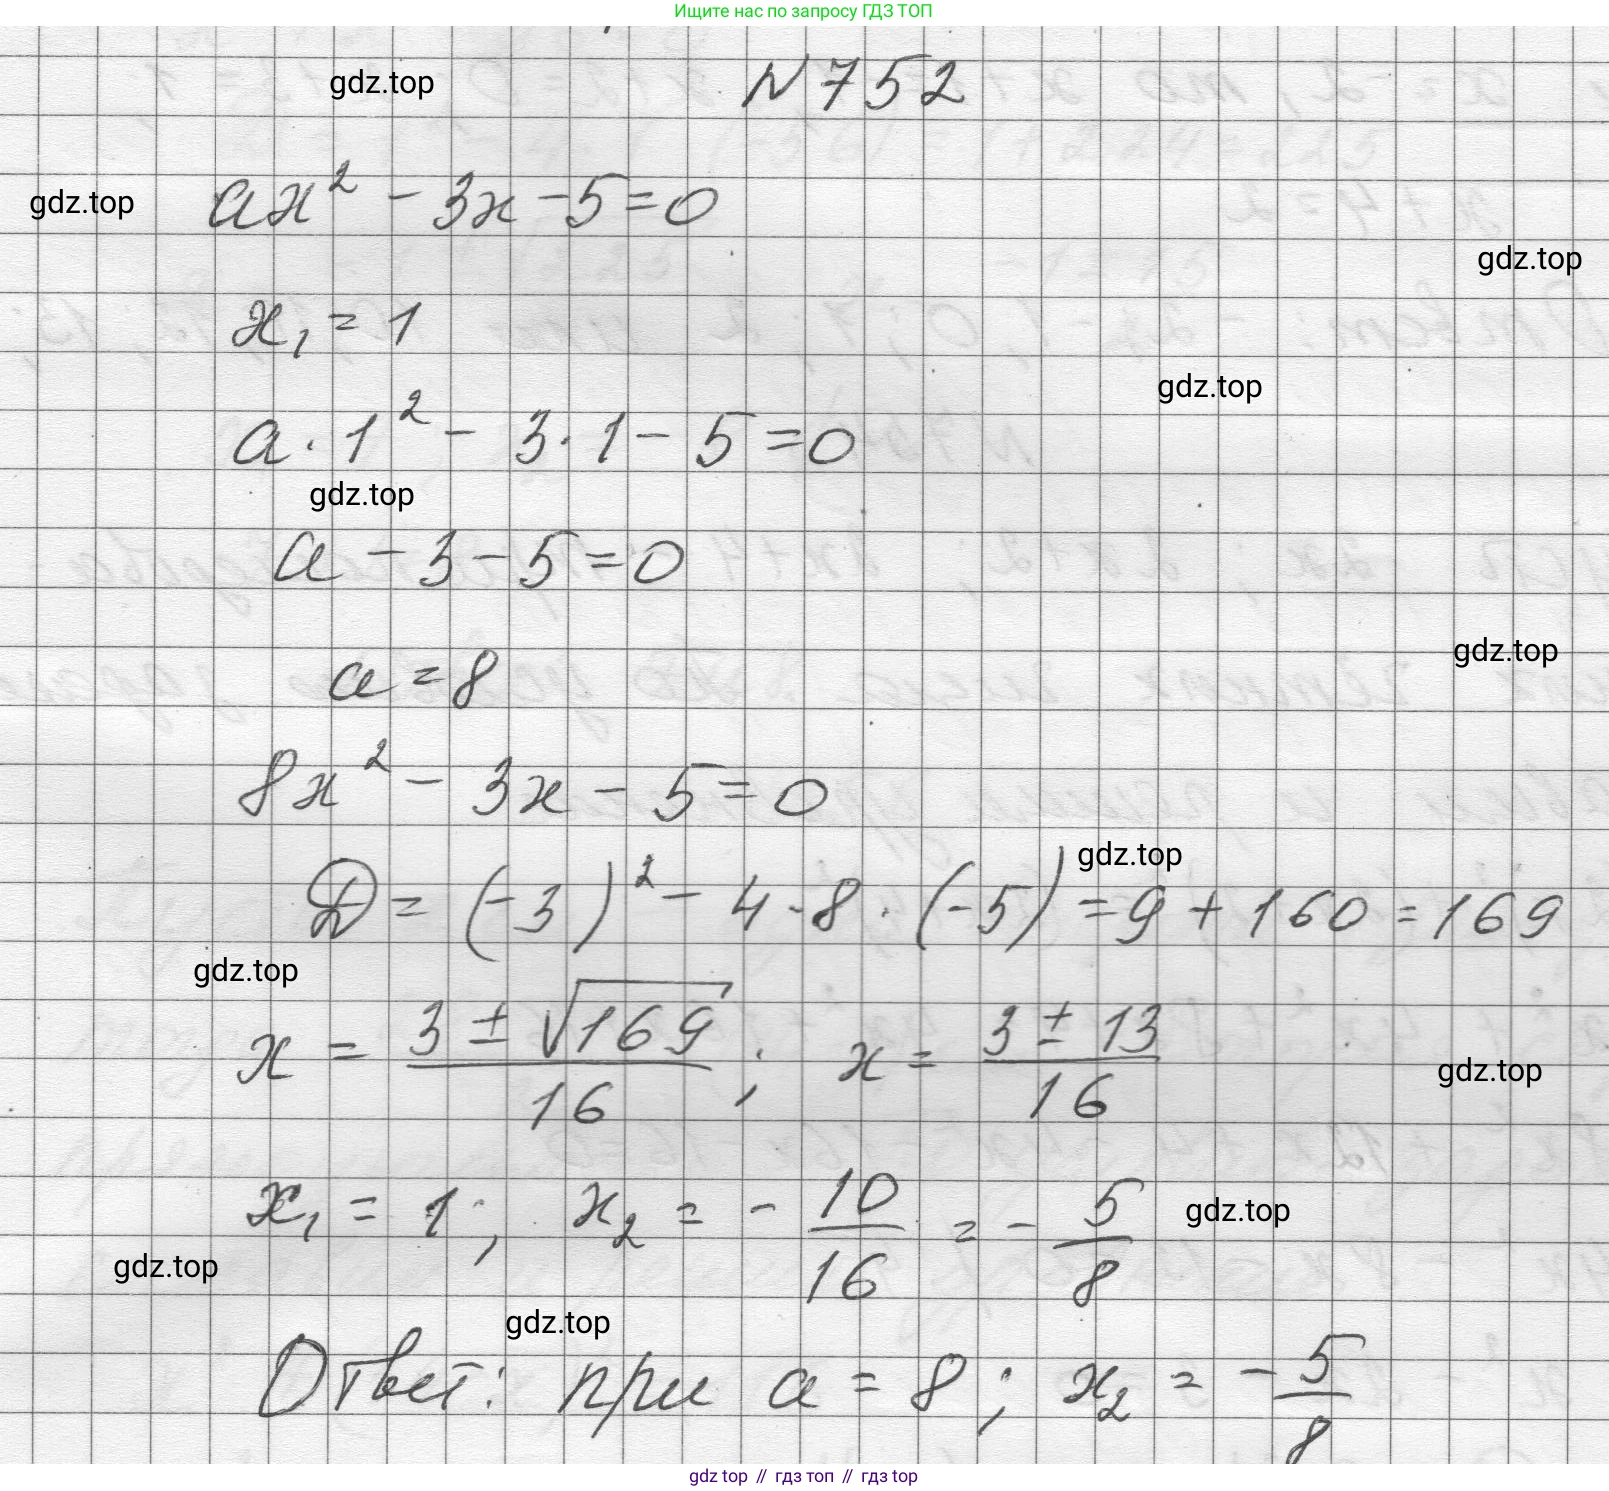 Ищите нас по запросу ГДЗ ТОП
gdz.top
N 752
gdz.top
ax² - 3x - 5 = 0
gdz.top
x₁ = 1
gdz.top
a · 1² - 3 · 1 - 5 = 0
gdz.top
a - 3 - 5 = 0
gdz.top
a = 8
8x² - 3x - 5 = 0
gdz.top
D = (-3)² - 4 · 8 · (-5) = 9 + 160 = 169
gdz.top
x = (3 ± √169)/16 ; x = (3 ± 13)/16
gdz.top
x₁ = 1 ; x₂ = - 10/16 = - 5/8
gdz.top
gdz.top
gdz.top
Ответ: при a = 8 ; x₂ = - 5/8
gdz top // гдз топ // гдз top